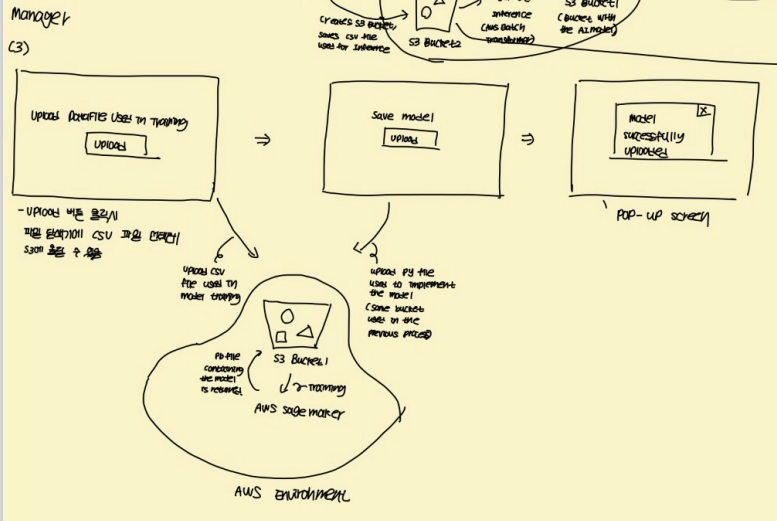 Manager
(3)
Creates S3 Bucket,
saves CSV file
used for Inference
S3 Bucket2
Inference
(AWS Batch
Transform)
S3 Bucket1
(Bucket with
the AI model)
Upload Datafile used in Training
Upload
⇒
Save model
Upload
⇒
X
Model
successfully
uploaded
Pop-up screen
- Upload 버튼 클릭시
파일 탐색기에 CSV 파일 선택해
S3에 올릴 수 있음
Upload CSV
file used in
model training
Upload py file
used to implement
the model
(same bucket
used in the
previous process)
S3 Bucket1
Pb file
containing
the model
is returned
training
AWS Sagemaker
AWS Environment